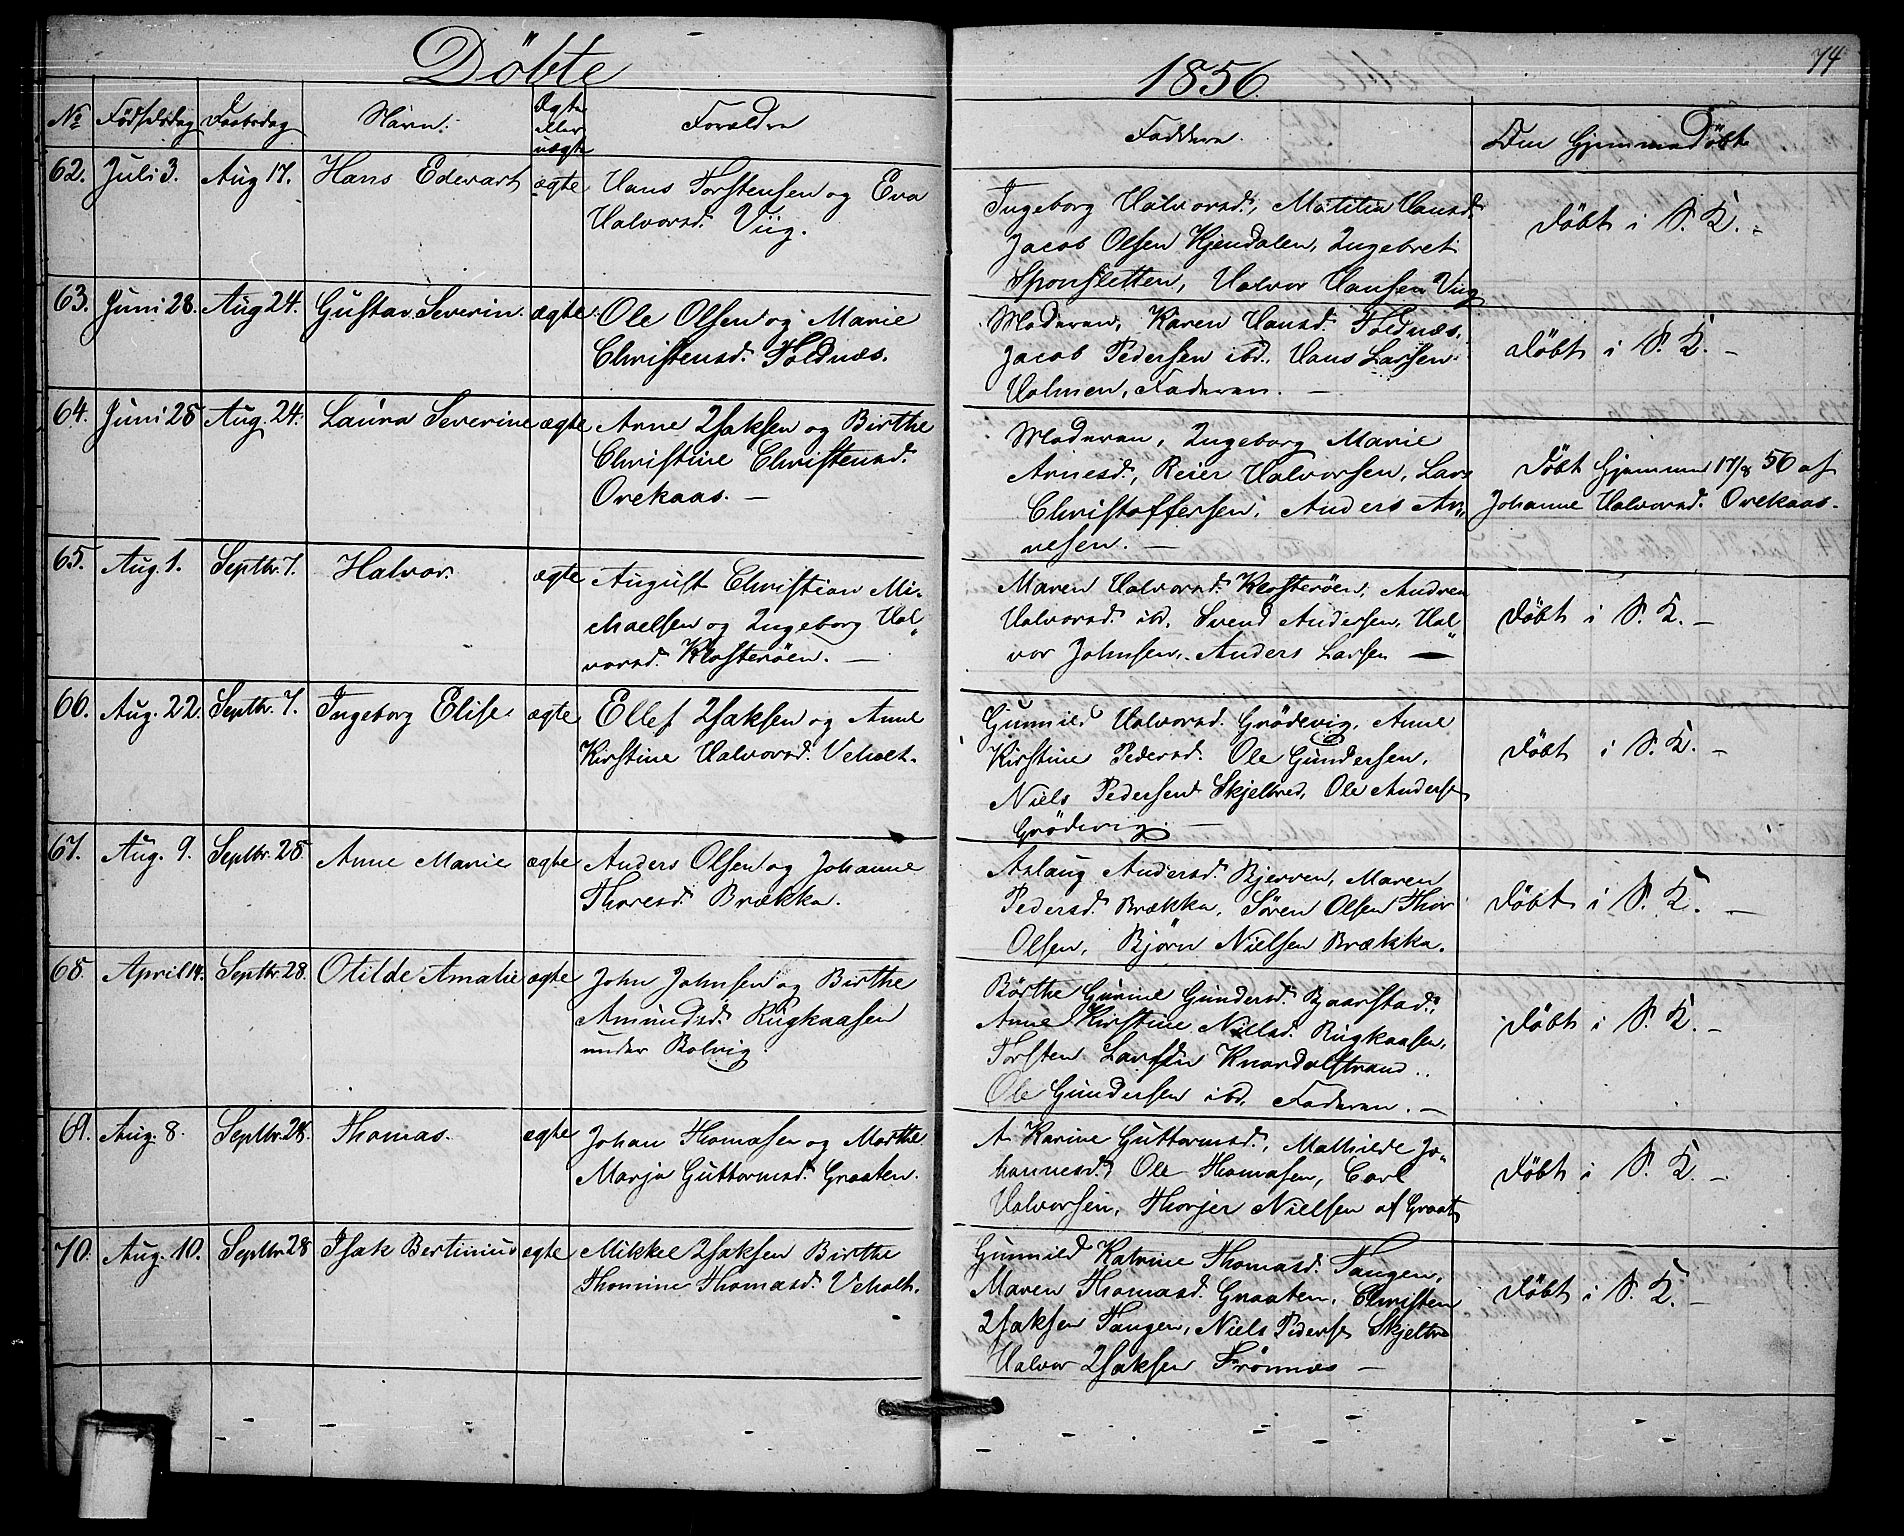 Döbte
1856.
74
No Födselsdag Daabsdag Navn. Ægte eller uægte Forældre Faddere. Om Hjemmedöbt
62. Juli 3. Aug 17. Hans Edevart ægte Hans Torstensen og Eva
Halvorsd. Viig.
Ingeborg Halvorsd., Matilia Hansd.
Jacob Olsen Kjendalen, Ingebret
Sponsletten, Halvor Hansen Viig
Döbt i S. K. -
63. Juni 28. Aug 24. Gustav Severin. ægte Ole Olsen og Marie
Christensd. Foldnæs.
Moderen, Karen Hansd. Foldnæs.
Jacob Pedersen ibd. Hans Larsen
Holmen, Faderen. -
Döbt i S. K. -
64. Juni 28 Aug. 24. Laura Severine ægte Arne Isaksen og Birthe
Christine Christensd.
Orekaas. -
Moderen, Ingeborg Marie
Arnesd., Reier Halvorsen, Lars
Christoffersen, Anders Ar-
nesen. -
Döbt Hjemme 17/8 56 af
Johanne Halvorsd. Orekaas.
65. Aug. 1. Septbr. 7. Halvor. ægte August Christian Mi-
chaelsen og Ingeborg Hal-
vorsd. Klosterøen. -
Maren Halvorsd. Klosterøen, Andrea
Halvorsd. ibd. Svend Andersen, Hal-
vor Johnsen, Anders Larsen -
Döbt i S. K. -
66. Aug. 22. Septbr. 7. Ingeborg Elise. ægte Ellef Isaksen og Anne
Kirstine Halvorsd. Veholt.
Gunnild Halvorsd. Grödevig, Anne
Kirstine Pedersd. Ole Gundersen,
Niels Pedersen Skjelbred, Ole Anderse
Grödevig. -
Döbt i S. K. -
67. Aug. 9. Septbr. 28. Anne Marie ægte Anders Olsen og Johanne
Thoresd. Brækka.
Aslaug Andersd. Bjerven, Maren
Pedersd. Brækka, Sören Olsen Thor
Olsen, Bjørn Nielsen Brækka.
Döbt i S. K. -
68. April 14. Septbr. 28. Otilde Amalie ægte John Johnsen og Birthe
Amundsd. Rugkaasen
under Bolvig.
Börthe Gurine Gundersd. Baarstad.
Anne Kirstine Nielsd. Rugkaasen,
Torsten Larsen Knardalstrand.
Ole Gundersen ibd. Faderen. -
Döbt i S. K. -
69. Aug. 8. Septbr. 28. Thomas. ægte Johan Thomasen og Marthe
Marja Guttormsd. Graaten.
A. Karine Guttormsd., Mathilde Jo-
hannesd. Ole Thomasen, Carl
Halvorsen, Thorjer Nielsen af Graat
Döbt i S. K. -
70. Aug. 10. Septbr 28 Isak Bertinius ægte Mikkel Isaksen Birthe
Thomine Thomasd. Veholt.
Gunnild Katrine Thomasd. Tangen,
Maren Thomasd. Graaten, Christen
Isaksen Tangen, Niels Pederse Skjelbre
Halvor Isaksen Frönnæs -
Döbt i S. K. -